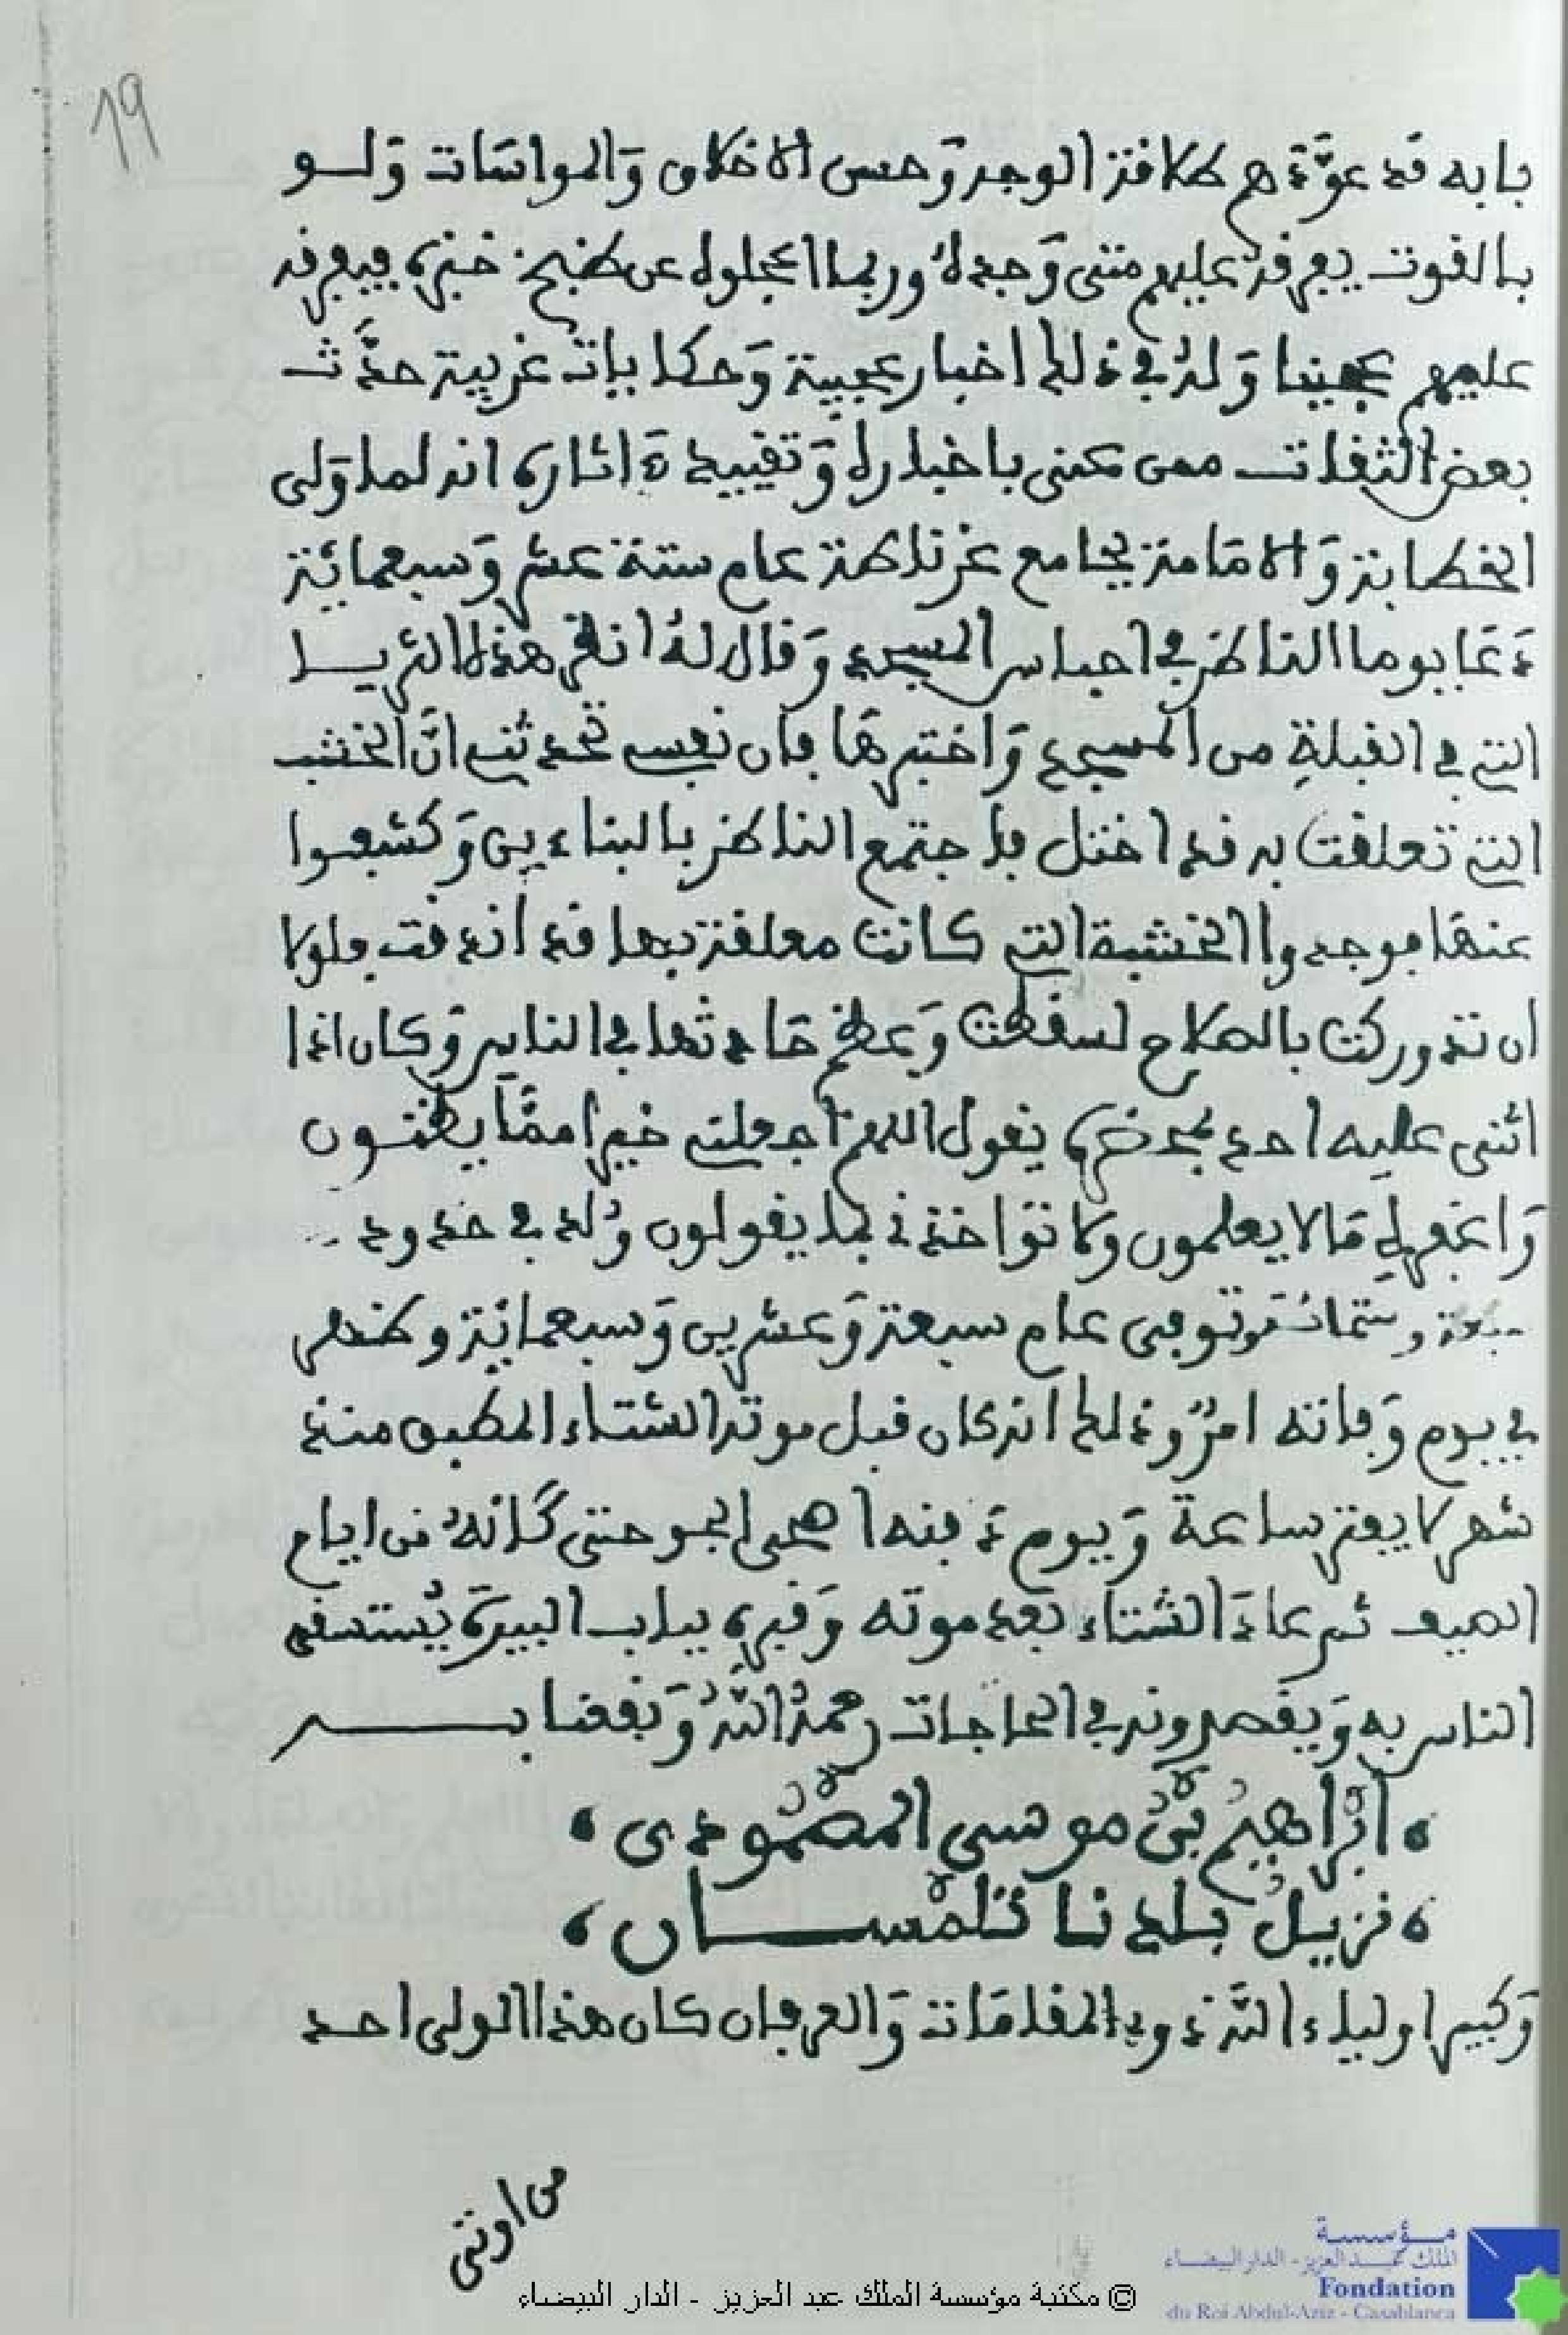 19
بابه قد عوّدهم طلاقة الوجه وَحسن الاخلاق وَالمواسَات وَلــو
بالقوت يفرقهُ عليهم متى وَجدهُ وربما اعجلوه عن طبخ خبزه فيفرقه
عليهم عجينا وَلهُ في ذلك اخبار عجيبة وَحكايات غريبة حدّث
بعض الثقات ممن عني باخباره وَتقييد ءاثاره انه لما وَلى
الخطابة وَالامَامة بجامع غرناطة عام ستة عشر وَسبعمائة
دَعَا يوما الناظر في احباس المسجد وَقال لهُ انظر هذه الثريــا
التي في القبلةِ من المسجد وَاختبرهَا فإن نفسي تحدثني انَّ الخشب
التي تعلقت به قد اختل فاجتمع الناظر بالبناءين وَكشفوا
عنهَا فوجدوا الخشبة التي كانت معلقة بها قد اندقت فلولا
ان تدوركت بالصلاح لسقطت وَعظم حَادثها في الناس وَكان اذا
اثنى عليه احد بمحضره يقول اللهم اجعلني خيرا ممَّا يظنــون
وَاغفر لي مَا لا يعلمون ولا تؤاخذني بما يقولون وُلد في حدود
سبعة وستمائة وتوفى عام سبعة وَعشرين وَسبعمائة وظهر
في يوم وَفاته امرٌ وذلك انه كان قبل موته الشتاء المطبق منذ
شهر لا يفتر ساعة وَيوم دَفنه اصحى الجو حتى كَانهُ من ايام
الصيف ثم عادَ الشتاء بَعد موته وَقبره بباب البيرَة يُستسقى
الناس به وَيقصدونه في الحاجات رحمهُ اللّهُ وَنفعنا بــــه
، ابْرَاهيمُ بْنُ موسى المصْمُودى ،
، نزيلُ بلدنا تَلمْســـان ،
وَكبير اولياء اللّه ذوي المقامَات وَالعرفان كان هذا الولى احــد
من اوتى
© مكتبة مؤسسة الملك عبد العزيز - الدار البيضاء
مؤسسة
الملك عبد العزيز - الدار البيضاء
Fondation
du Roi Abdul-Aziz - Casablanca